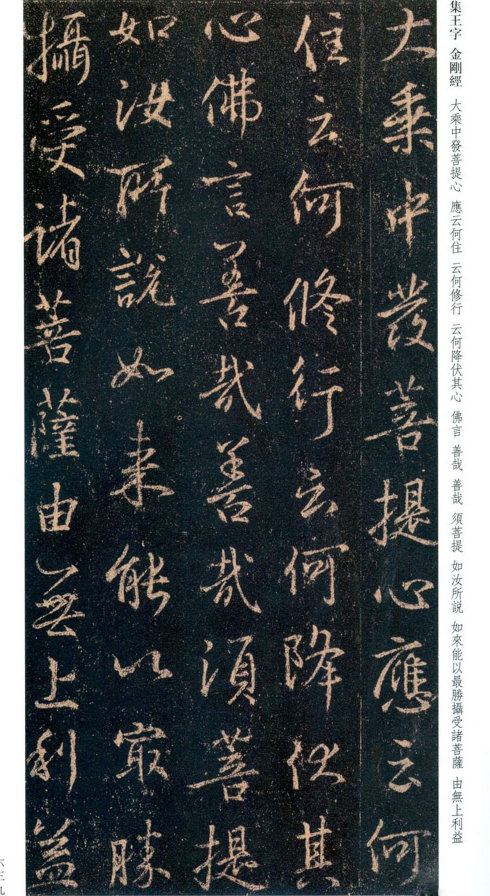 集王字 金剛經 大乘中發菩提心 應云何住 云何修行 云何降伏其心 佛言 善哉 善哉 須菩提 如汝所説 如來能以最勝攝受諸菩薩 由無上利益
大乘中發菩提心應云何
住云何修行云何降伏其
心佛言善哉善哉須菩提
如汝所說如来能以寂勝
攝受諸菩薩由無上利益
六三九